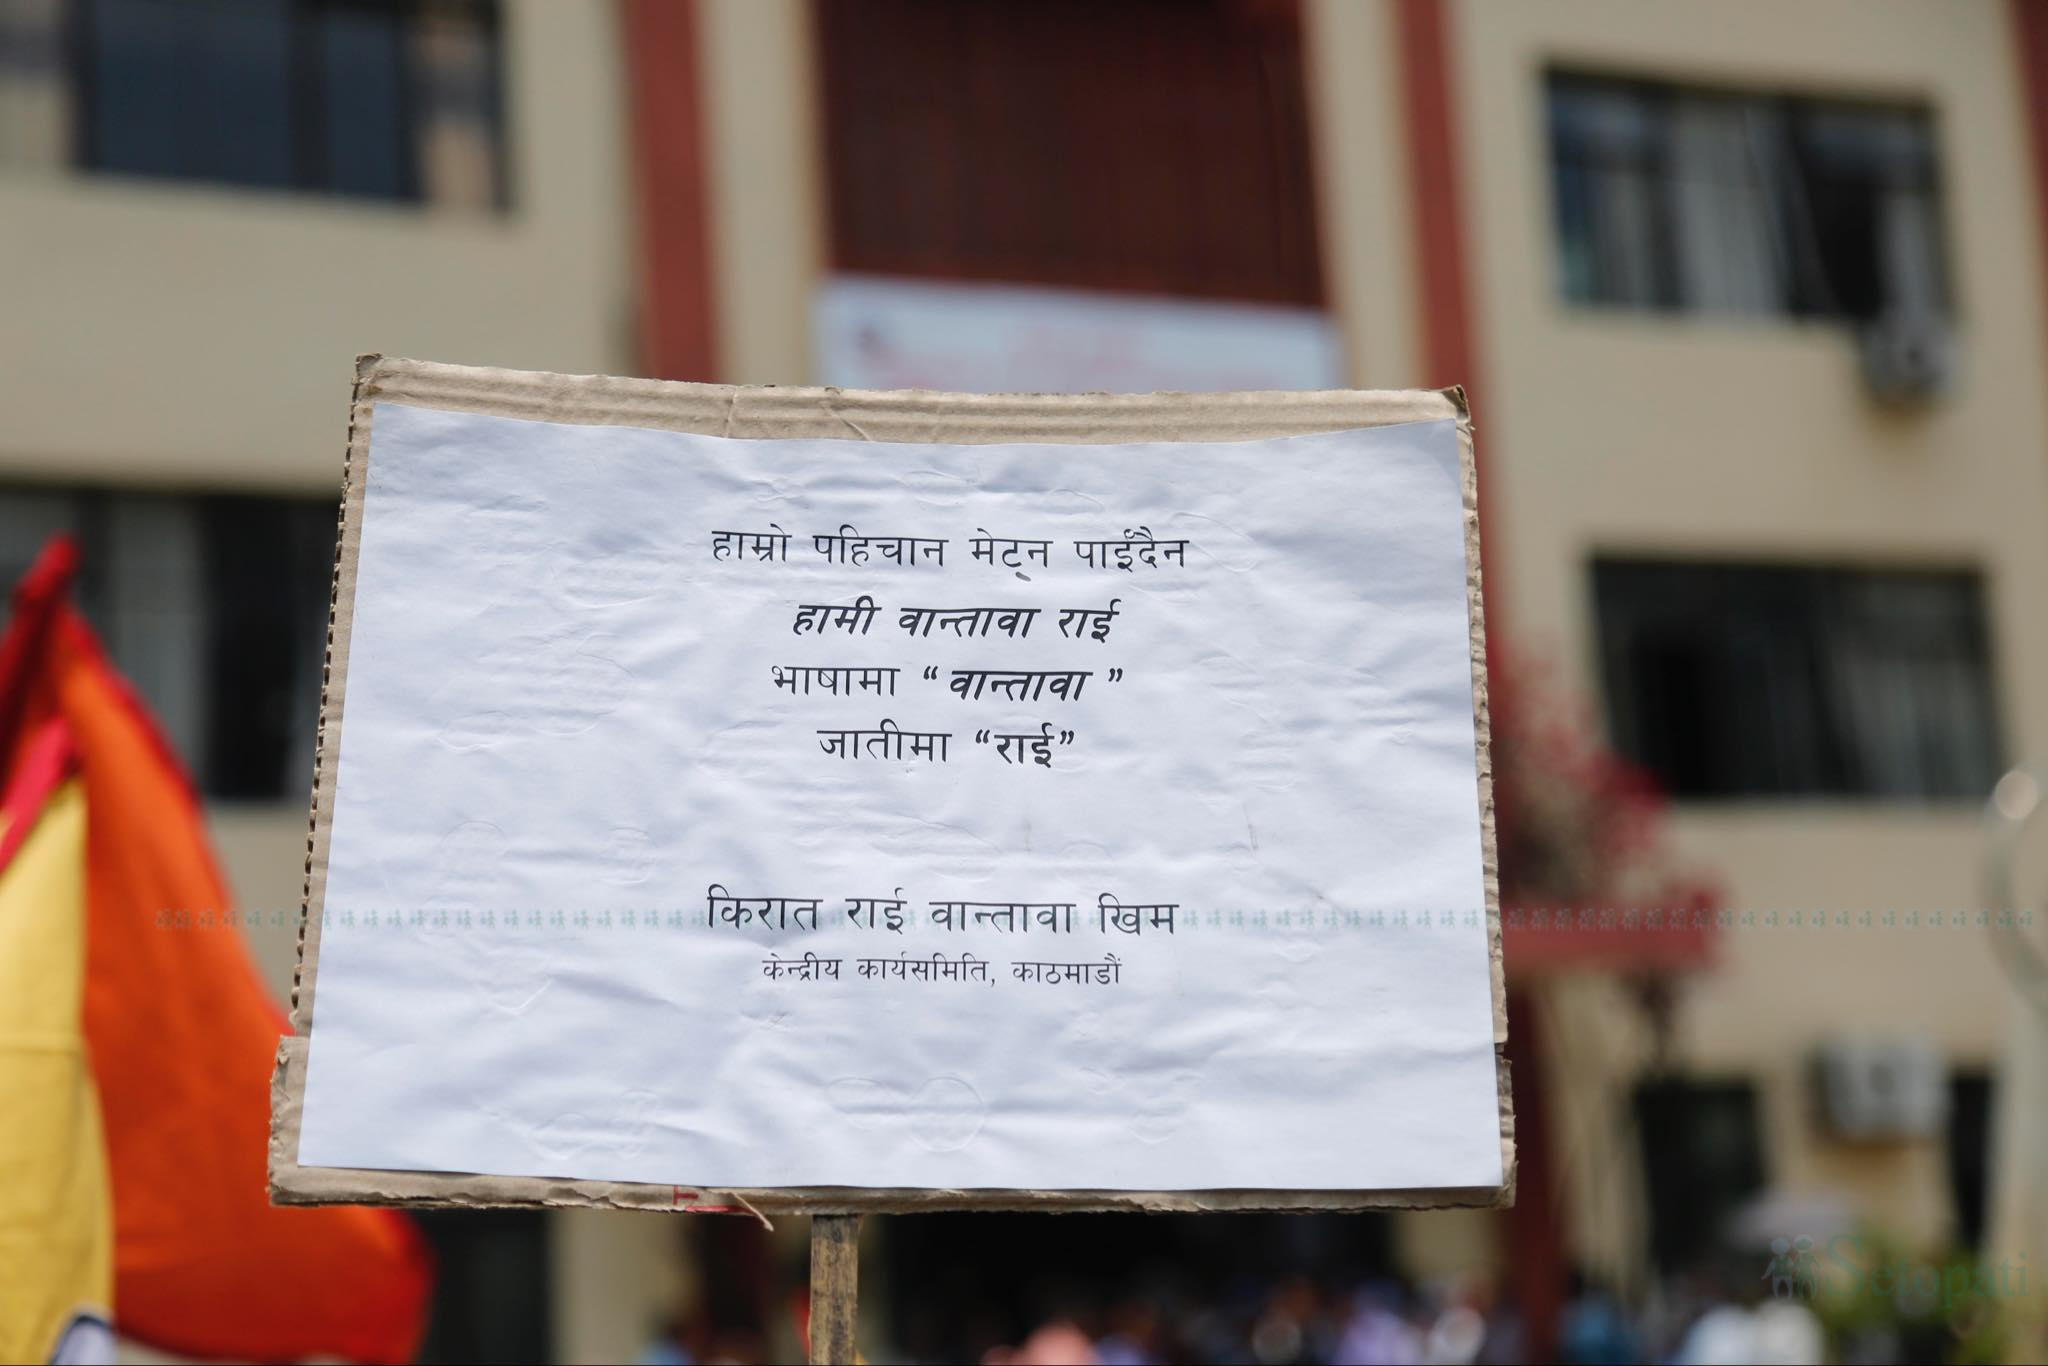 हाम्रो पहिचान मेट्‌न पाईँदैन
हामी वान्तावा राई
भाषामा “वान्तावा ”
जातीमा “राई”
किरात राई वान्तावा खिम
केन्द्रीय कार्यसमिति, काठमाडौं
Setopati